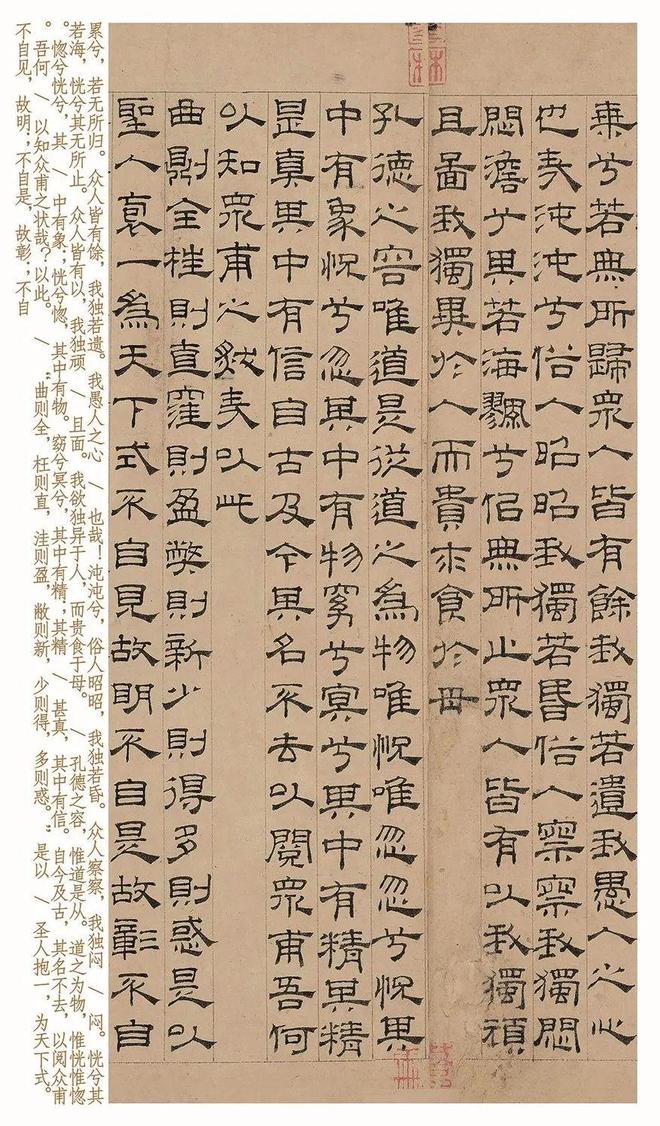 乘兮若無所歸衆人皆有餘我獨若遺我愚人之心
也哉沌沌兮俗人昭昭我獨若昏俗人察察我獨悶
悶澹兮其若海飂兮似無所止衆人皆有以我獨頑
且啚我獨異於人而貴求食於母
孔德之容唯道是從道之爲物唯怳唯忽忽兮怳其
中有象怳兮忽其中有物窈兮冥兮其中有精其精
甚真其中有信自古及今其名不去以閱衆甫吾何
以知衆甫之然哉以此
曲則全枉則直窪則盈弊則新少則得多則惑是以
聖人袌一爲天下式不自見故明不自是故彰不自
累兮，若无所归。众人皆有馀，我独若遗。我愚人之心 \ 也哉！沌沌兮，俗人昭昭，我独若昏。众人察察，我独闷 \ 闷。恍兮其
若海，恍兮其无所止。众人皆有以，我独顽 \ 且面。我欲独异于人，而贵食于母。 \ 孔德之容，惟道是从。道之为物，惟恍惟惚
。惚兮恍兮，其 \ 中有象；恍兮惚，其中有物。窈兮冥兮，其中有精；其精 \ 甚真，其中有信。自今及古，其名不去，以阅众甫
。吾何 \ 以知众甫之状哉？以此。 \ “曲则全，枉则直，洼则盈，敝则新，少则得，多则惑。”是以 \ 圣人抱一，为天下式。
不自见，故明；不自是，故彰；不自